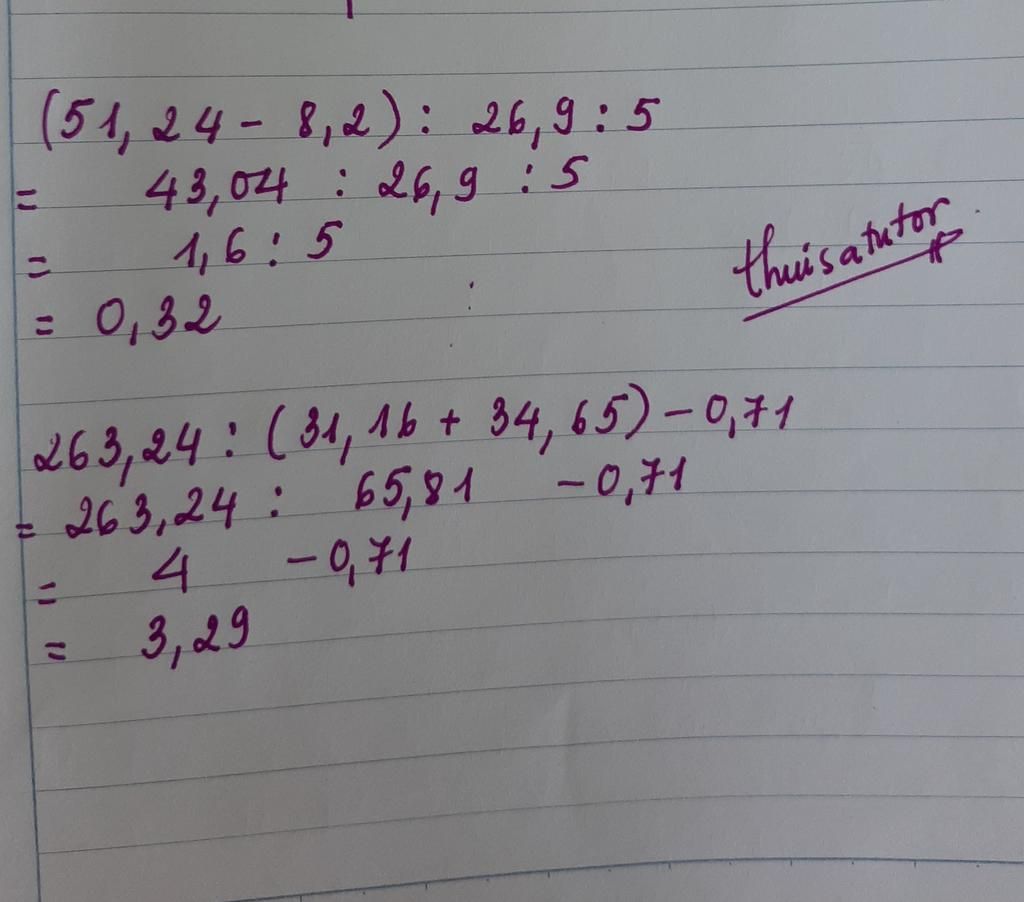 (51,24 - 8,2) : 26,9 : 5
= 43,04 : 26,9 : 5
= 1,6 : 5
= 0,32
thuisatutor
263,24 : (31,16 + 34,65) - 0,71
= 263,24 : 65,81 - 0,71
= 4 - 0,71
= 3,29